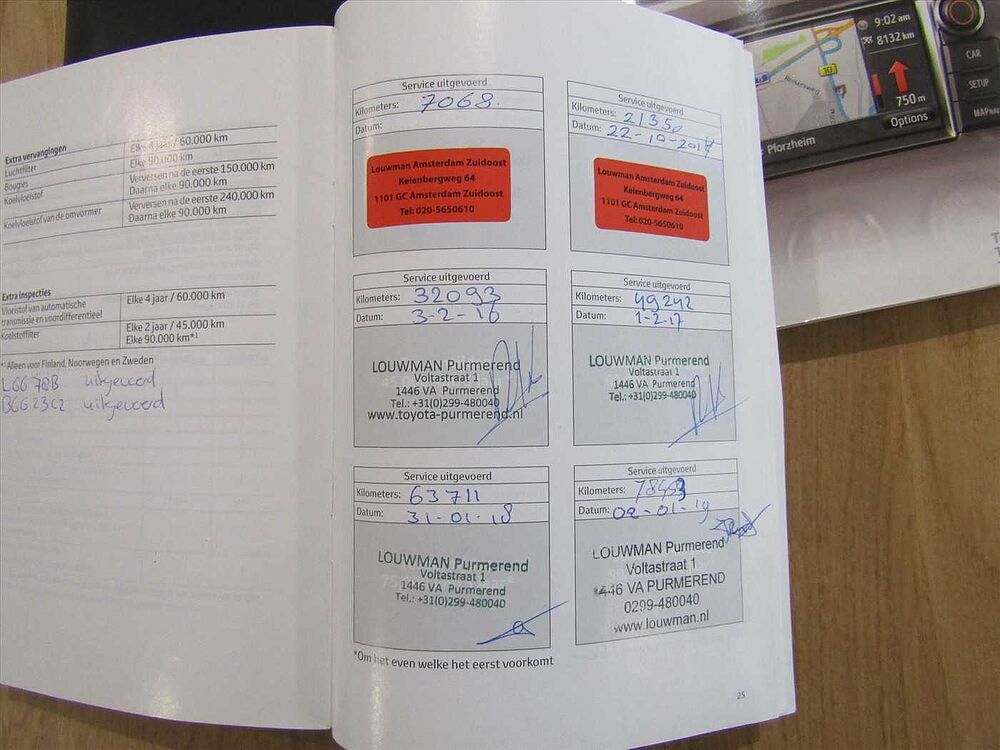 Extra vervangingen
Luchtfilter Elke 4 jaar / 60.000 km
Bougies Elke 90.000 km
Koelvloeistof Verversen na de eerste 150.000 km
Daarna elke 90.000 km
Koelvloeistof van de omvormer Verversen na de eerste 240.000 km
Daarna elke 90.000 km
Extra inspecties
Vloeistof van automatische transmissie en voordifferentieel Elke 4 jaar / 60.000 km
Koolstoffilter Elke 2 jaar / 45.000 km
Elke 90.000 km*¹
*¹ Alleen voor Finland, Noorwegen en Zweden
LGG78B uitgevoerd
BGG23C2 uitgevoerd
Service uitgevoerd
Kilometers: 7068
Datum:
Louwman Amsterdam Zuidoost
Keienbergweg 64
1101 GC Amsterdam Zuidoost
Tel: 020-5650610
Service uitgevoerd
Kilometers: 21350
Datum: 22-10-2014
Louwman Amsterdam Zuidoost
Keienbergweg 64
1101 GC Amsterdam Zuidoost
Tel: 020-5650610
Service uitgevoerd
Kilometers: 32093
Datum: 3-2-16
LOUWMAN Purmerend
Voltastraat 1
1446 VA Purmerend
Tel.: +31(0)299-480040
www.toyota-purmerend.nl
Service uitgevoerd
Kilometers: 49242
Datum: 1-2-17
LOUWMAN Purmerend
Voltastraat 1
1446 VA Purmerend
Tel.: +31(0)299-480040
Service uitgevoerd
Kilometers: 63711
Datum: 31-01-18
LOUWMAN Purmerend
Voltastraat 1
1446 VA Purmerend
Tel.: +31(0)299-480040
Service uitgevoerd
Kilometers: 78453
Datum: 02-01-19
LOUWMAN Purmerend
Voltastraat 1
1446 VA PURMEREND
0299-480040
www.louwman.nl
*Om het even welke het eerst voorkomt
25
9:02 am
8132 km
10
750 m
Options
Pforzheim
CAR
SETUP
MAP